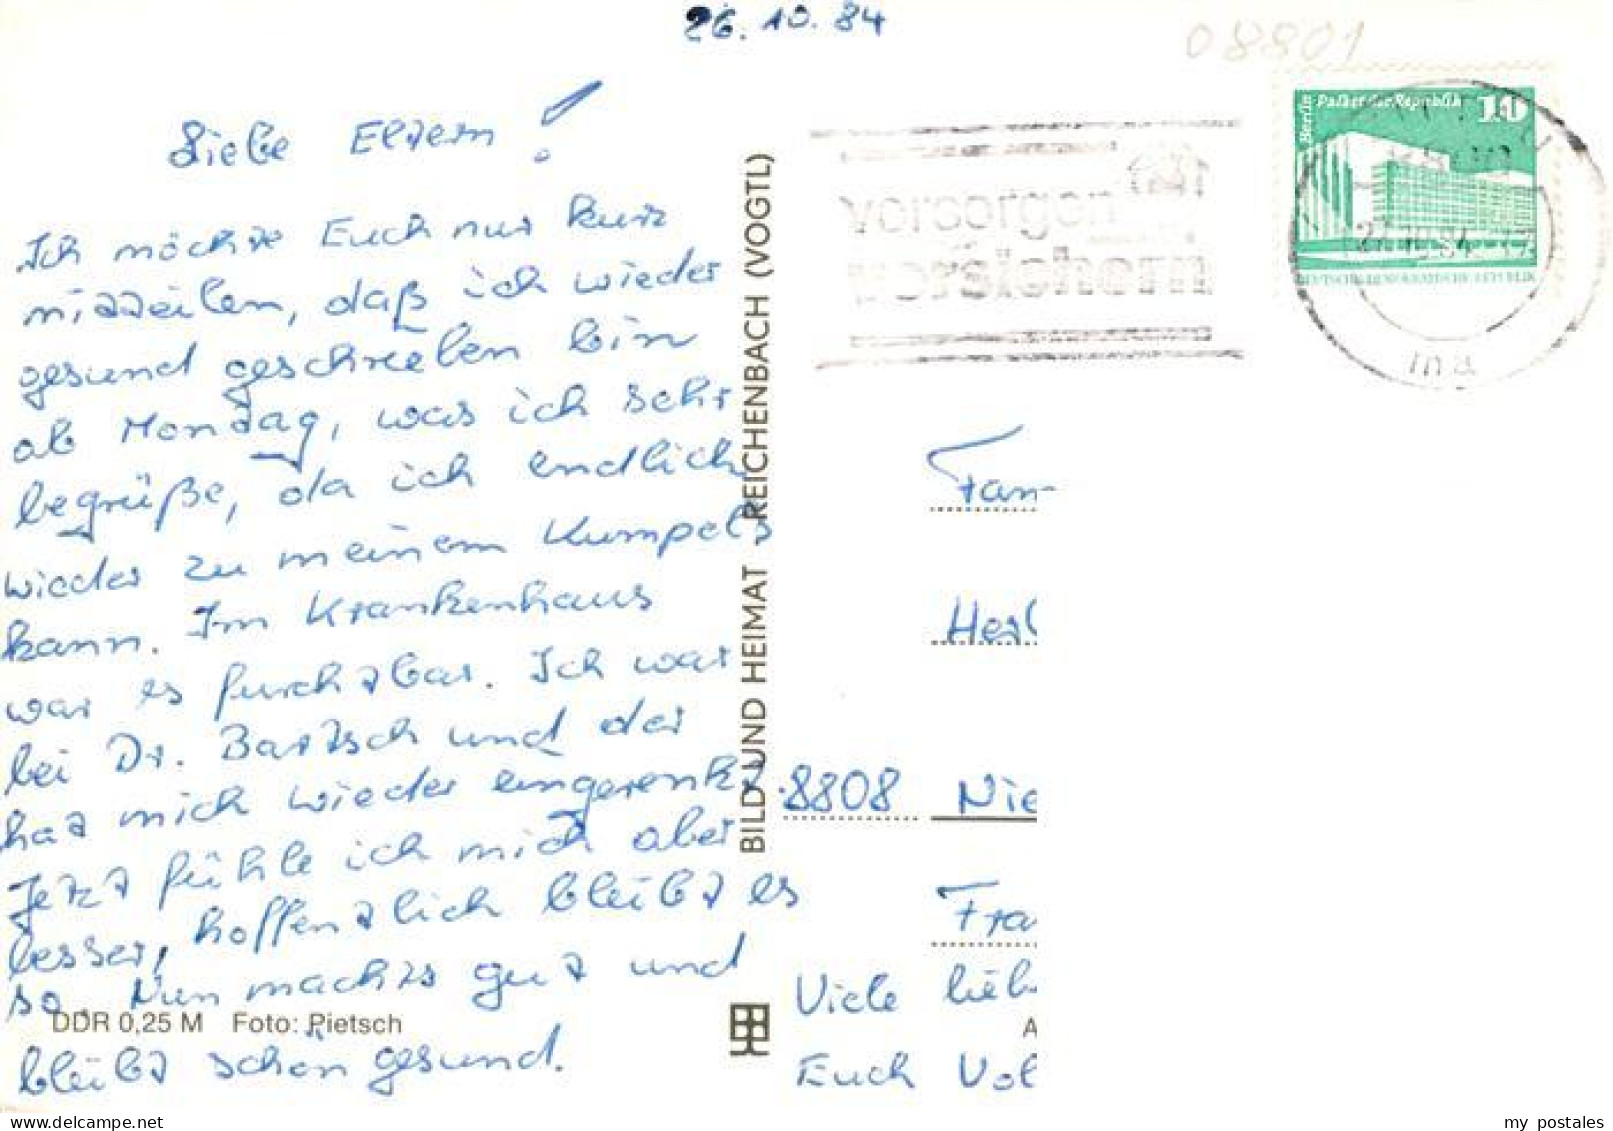 26.10.84
08801
Liebe Eltern!
Ich möchte Euch nur kurz
mitteilen, daß ich wieder
gesund geschrieben bin
ab Montag, was ich sehr
begrüße, da ich endlich
wieder zu meinem Kumpels
kann. Im Krankenhaus
war es furchtbar. Ich war
bei Dr. Bartsch und der
hat mich wieder eingerenkt
Jetzt fühle ich mich aber
besser, hoffentlich bleibt es
so. Nun machts gut und
bleibt schön gesund.
DDR 0,25 M Foto: Pietsch
BILD UND HEIMAT REICHENBACH (VOGTL)
vorsorgen
versichern
Berlin Palast der Republik 10
DEUTSCHE DEMOKRATISCHE REPUBLIK
27.10.84-17
ma
Fam
Her
8808 Nie
Fra
Viele lieb
A
Euch Vol
my_postales